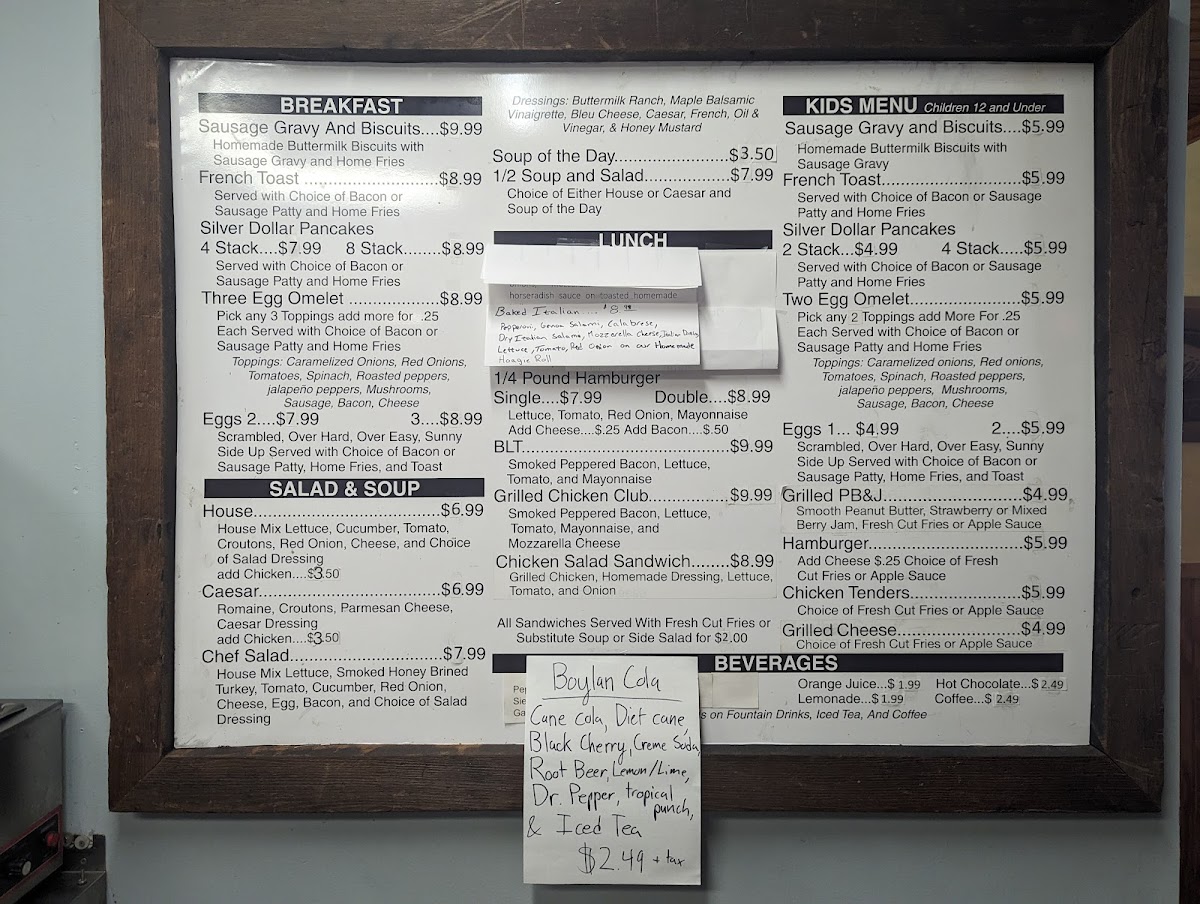 BREAKFAST
Sausage Gravy And Biscuits....$9.99
Homemade Buttermilk Biscuits with
Sausage Gravy and Home Fries
French Toast ........................$8.99
Served with Choice of Bacon or
Sausage Patty and Home Fries
Silver Dollar Pancakes
4 Stack....$7.99 8 Stack.....$8.99
Served with Choice of Bacon or
Sausage Patty and Home Fries
Three Egg Omelet .................$8.99
Pick any 3 Toppings add more for .25
Each Served with Choice of Bacon or
Sausage Patty and Home Fries
Toppings: Caramelized Onions, Red Onions,
Tomatoes, Spinach, Roasted peppers,
jalapeño peppers, Mushrooms,
Sausage, Bacon, Cheese
Eggs 2....$7.99 3....$8.99
Scrambled, Over Hard, Over Easy, Sunny
Side Up Served with Choice of Bacon or
Sausage Patty, Home Fries, and Toast
SALAD & SOUP
House..................................$6.99
House Mix Lettuce, Cucumber, Tomato,
Croutons, Red Onion, Cheese, and Choice
of Salad Dressing
add Chicken....$3.50
Caesar.................................$6.99
Romaine, Croutons, Parmesan Cheese,
Caesar Dressing
add Chicken....$3.50
Chef Salad...........................$7.99
House Mix Lettuce, Smoked Honey Brined
Turkey, Tomato, Cucumber, Red Onion,
Cheese, Egg, Bacon, and Choice of Salad
Dressing
Dressings: Buttermilk Ranch, Maple Balsamic
Vinaigrette, Bleu Cheese, Caesar, French, Oil &
Vinegar, & Honey Mustard
Soup of the Day.....................$3.50
1/2 Soup and Salad................$7.99
Choice of Either House or Caesar and
Soup of the Day
LUNCH
horseradish sauce on toasted homemade
Baked Italian .... $8.99
Pepperoni, Genoa Salami, Calabrese,
Dry Italian Salame, Mozzarella Cheese, Italian
Lettuce, Tomato, Red Onion on our Homemade
Hoagie Roll
1/4 Pound Hamburger
Single....$7.99 Double....$8.99
Lettuce, Tomato, Red Onion, Mayonnaise
Add Cheese....$.25 Add Bacon....$.50
BLT.......................................$9.99
Smoked Peppered Bacon, Lettuce,
Tomato, and Mayonnaise
Grilled Chicken Club...............$9.99
Smoked Peppered Bacon, Lettuce,
Tomato, Mayonnaise, and
Mozzarella Cheese
Chicken Salad Sandwich.......$8.99
Grilled Chicken, Homemade Dressing, Lettuce,
Tomato, and Onion
All Sandwiches Served With Fresh Cut Fries or
Substitute Soup or Side Salad for $2.00
KIDS MENU Children 12 and Under
Sausage Gravy and Biscuits....$5.99
Homemade Buttermilk Biscuits with
Sausage Gravy
French Toast..........................$5.99
Served with Choice of Bacon or Sausage
Patty and Home Fries
Silver Dollar Pancakes
2 Stack...$4.99 4 Stack....$5.99
Served with Choice of Bacon or Sausage
Patty and Home Fries
Two Egg Omelet.....................$5.99
Pick any 2 Toppings Add More For .25
Each Served with Choice of Bacon or
Sausage Patty and Home Fries
Toppings: Caramelized onions, Red onions,
Tomatoes, Spinach, Roasted peppers,
jalapeño peppers, Mushrooms,
Sausage, Bacon, Cheese
Eggs 1... $4.99 2....$5.99
Scrambled, Over Hard, Over Easy, Sunny
Side Up Served with Choice of Bacon or
Sausage Patty, Home Fries, and Toast
Grilled PB&J..........................$4.99
Smooth Peanut Butter, Strawberry or Mixed
Berry Jam, Fresh Cut Fries or Apple Sauce
Hamburger............................$5.99
Add Cheese $.25 Choice of Fresh
Cut Fries or Apple Sauce
Chicken Tenders....................$5.99
Choice of Fresh Cut Fries or Apple Sauce
Grilled Cheese.......................$4.99
Choice of Fresh Cut Fries or Apple Sauce
BEVERAGES
Pe
Sie
Ga
Orange Juice...$ 1.99 Hot Chocolate...$ 2.49
Lemonade...$ 1.99 Coffee...$ 2.49
s on Fountain Drinks, Iced Tea, And Coffee
Boylan Cola
Cane cola, Diet cane,
Black Cherry, Creme Soda,
Root Beer, Lemon/Lime,
Dr. Pepper, tropical
punch,
& Iced Tea
$2.49 + tax